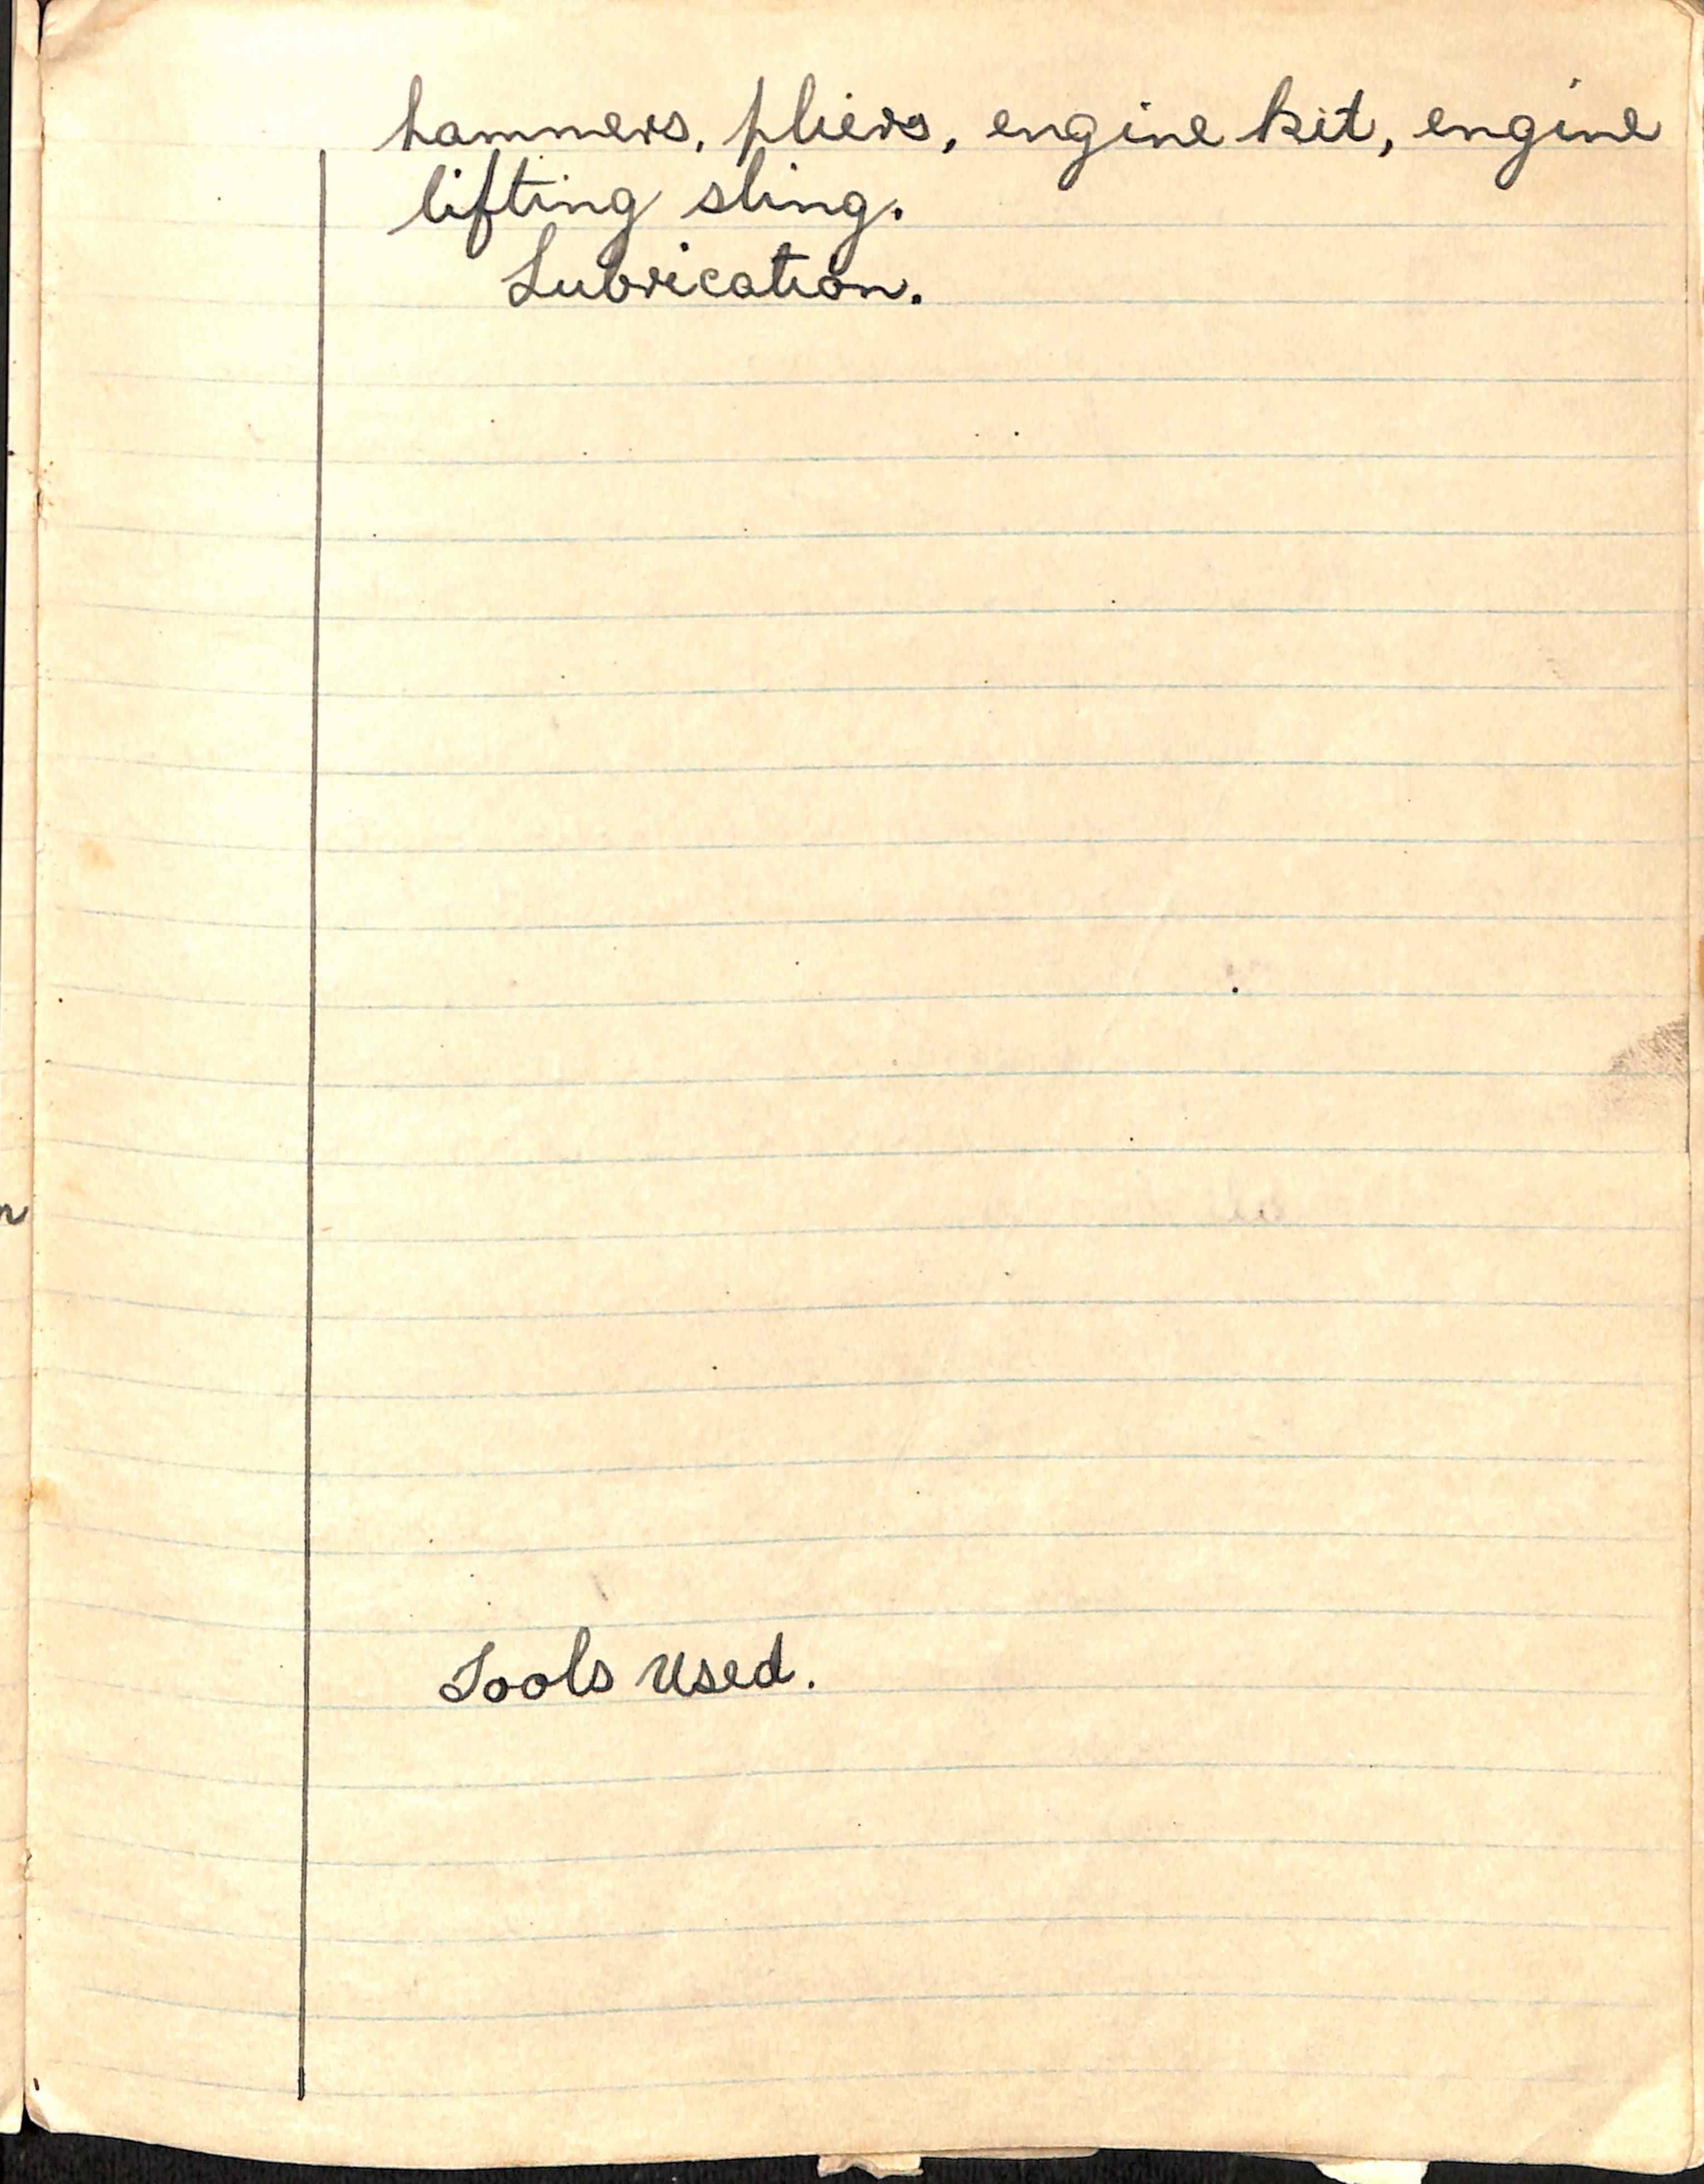 hammers, pliers, engine kit, engine
lifting sling.
Lubrication.
Tools used.